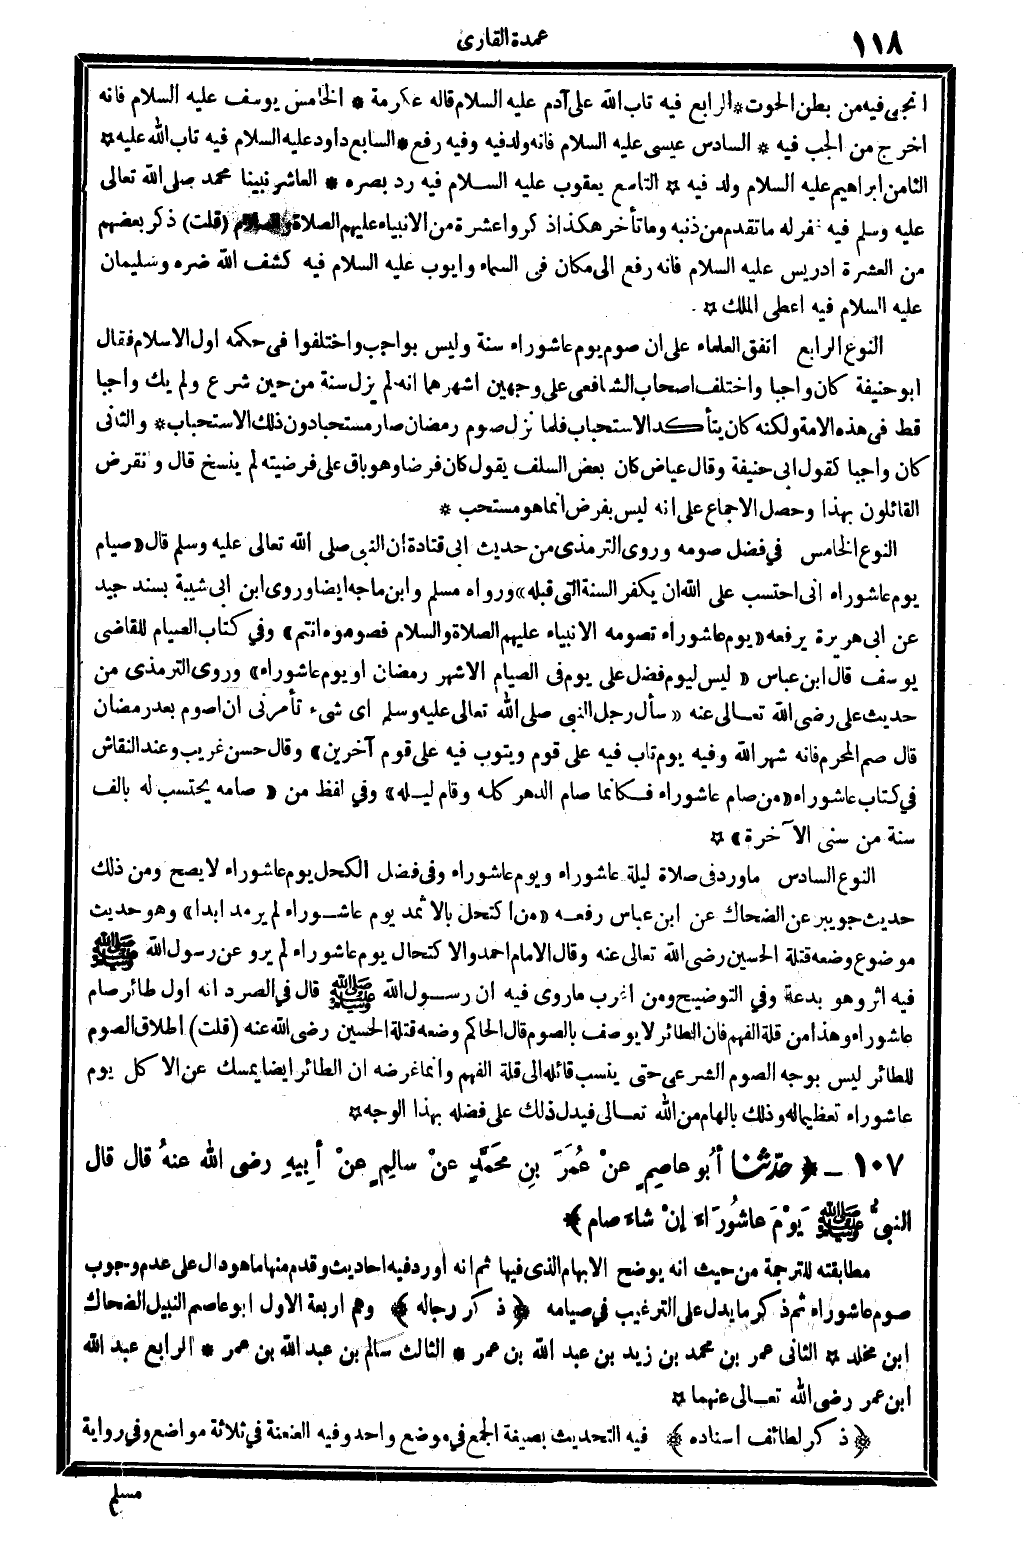 ١١٨
عمدة القارى
انجى فيه من بطن الحوت * الرابع فيه تاب الله على آدم عليه السلام قاله عكرمة * الخامس يوسف عليه السلام فانه
اخرج من الجب فيه * السادس عيسى عليه السلام فانه ولد فيه وفيه رفع * السابع داود عليه السلام فيه تاب الله عليه *
الثامن ابراهيم عليه السلام ولد فيه * التاسع يعقوب عليه السلام فيه رد بصره * العاشر نبينا محمد صلى الله تعالى
عليه وسلم فيه غفر له ما تقدم من ذنبه وما تأخر هكذا ذكروا عشرة من الانبياء عليهم الصلاة والسلام (قلت) ذكر بعضهم
من العشرة ادريس عليه السلام فانه رفع الى مكان فى السماء وايوب عليه السلام فيه كشف الله ضره وسليمان
عليه السلام فيه اعطى الملك *
النوع الرابع اتفق العلماء على ان صوم يوم عاشوراء سنة وليس بواجب واختلفوا فى حكمه اول الاسلام فقال
ابو حنيفة كان واجبا واختلف اصحاب الشافعى على وجهين اشهرهما انه لم يزل سنة من حين شرع ولم يك واجبا
قط فى هذه الامة ولكنه كان يتأكد الاستحباب فلما نزل صوم رمضان صار مستحبا دون ذلك الاستحباب * والثانى
كان واجبا كقول ابى حنيفة وقال عياض كان بعض السلف يقول كان فرضا وهو باق على فرضيته لم ينسخ قال وانقرض
القائلون بهذا وحصل الاجماع على انه ليس بفرض انما هو مستحب *
النوع الخامس في فضل صومه وروى الترمذى من حديث ابى قتادة ان النبى صلى الله تعالى عليه وسلم قال «صيام
يوم عاشوراء انى احتسب على الله ان يكفر السنة التى قبله» ورواه مسلم وابن ماجه ايضا وروى ابن ابى شيبة بسند جيد
عن ابى هريرة يرفعه «يوم عاشوراء تصومه الانبياء عليهم الصلاة والسلام فصوموه انتم» وفي كتاب الصيام للقاضى
يوسف قال ابن عباس « ليس ليوم فضل على يوم فى الصيام الا شهر رمضان او يوم عاشوراء» وروى الترمذى من
حديث على رضى الله تعالى عنه « سأل رجل النبى صلى الله تعالى عليه وسلم اى شىء تأمرنى ان اصوم بعد رمضان
قال صم المحرم فانه شهر الله وفيه يوم تاب فيه على قوم ويتوب فيه على قوم آخرين» وقال حسن غريب وعند النقاش
في كتاب عاشوراء «من صام عاشوراء فكانما صام الدهر كله وقام ليله» وفي لفظ من « صامه يحتسب له بالف
سنة من سنى الآخرة» *
النوع السادس ما ورد فى صلاة ليلة عاشوراء ويوم عاشوراء وفى فضل الكحل يوم عاشوراء لا يصح ومن ذلك
حديث جويبر عن الضحاك عن ابن عباس رفعه «من اكتحل بالاثمد يوم عاشوراء لم يرمد ابدا» وهو حديث
موضوع وضعه قتلة الحسين رضى الله تعالى عنه وقال الامام احمد والاكتحال يوم عاشوراء لم يرو عن رسول الله ﷺ
فيه اثر وهو بدعة وفي التوضيح ومن اغرب ما روى فيه ان رسول الله ﷺ قال في الصرد انه اول طائر صام
عاشوراء وهذا من قلة الفهم فان الطائر لا يوصف بالصوم قال الحاكم وضعه قتلة الحسين رضى الله عنه (قلت) اطلاق الصوم
للطائر ليس بوجه الصوم الشرعى حتى ينسب قائله الى قلة الفهم وانما غرضه ان الطائر ايضا يمسك عن الاكل يوم
عاشوراء تعظيما له وذلك بالهام من الله تعالى فيدل ذلك على فضله بهذا الوجه *
١٠٧ ــ ﴿ حدّثنا أبُو عاصِمٍ عنْ عُمَرَ بنِ محَمَّدٍ عنْ سالِمٍ عنْ أبِيهِ رضى الله عنهُ قال قال
النبىُّ ﷺ يَوْمَ عاشُورَاءَ إنْ شاءَ صامَ ﴾
مطابقته للترجمة من حيث انه يوضح الابهام الذى فيها ثم انه أورد فيه احاديث وقدم منها ما هو دال على عدم وجوب
صوم عاشوراء ثم ذكر ما يدل على الترغيب في صيامه ﴿ ذكر رجاله ﴾ وهم اربعة الاول ابو عاصم النبيل الضحاك
ابن مخلد * الثانى عمر بن محمد بن زيد بن عبد الله بن عمر * الثالث سالم بن عبد الله بن عمر * الرابع عبد الله
ابن عمر رضى الله تعالى عنهما *
﴿ ذكر لطائف اسناده ﴾ فيه التحديث بصيغة الجمع في موضع واحد وفيه العنعنة في ثلاثة مواضع وفي رواية
مسلم